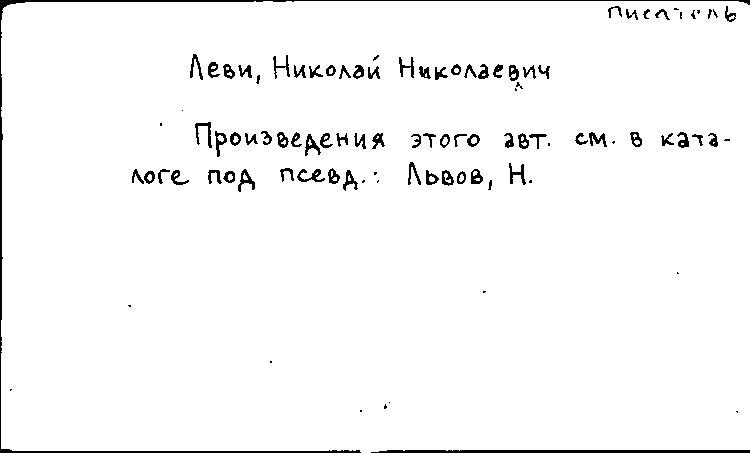 писатель
Леви, Николай Николаевич
Произведения этого авт. см. в ката-
логе под псевд.: Львов, Н.